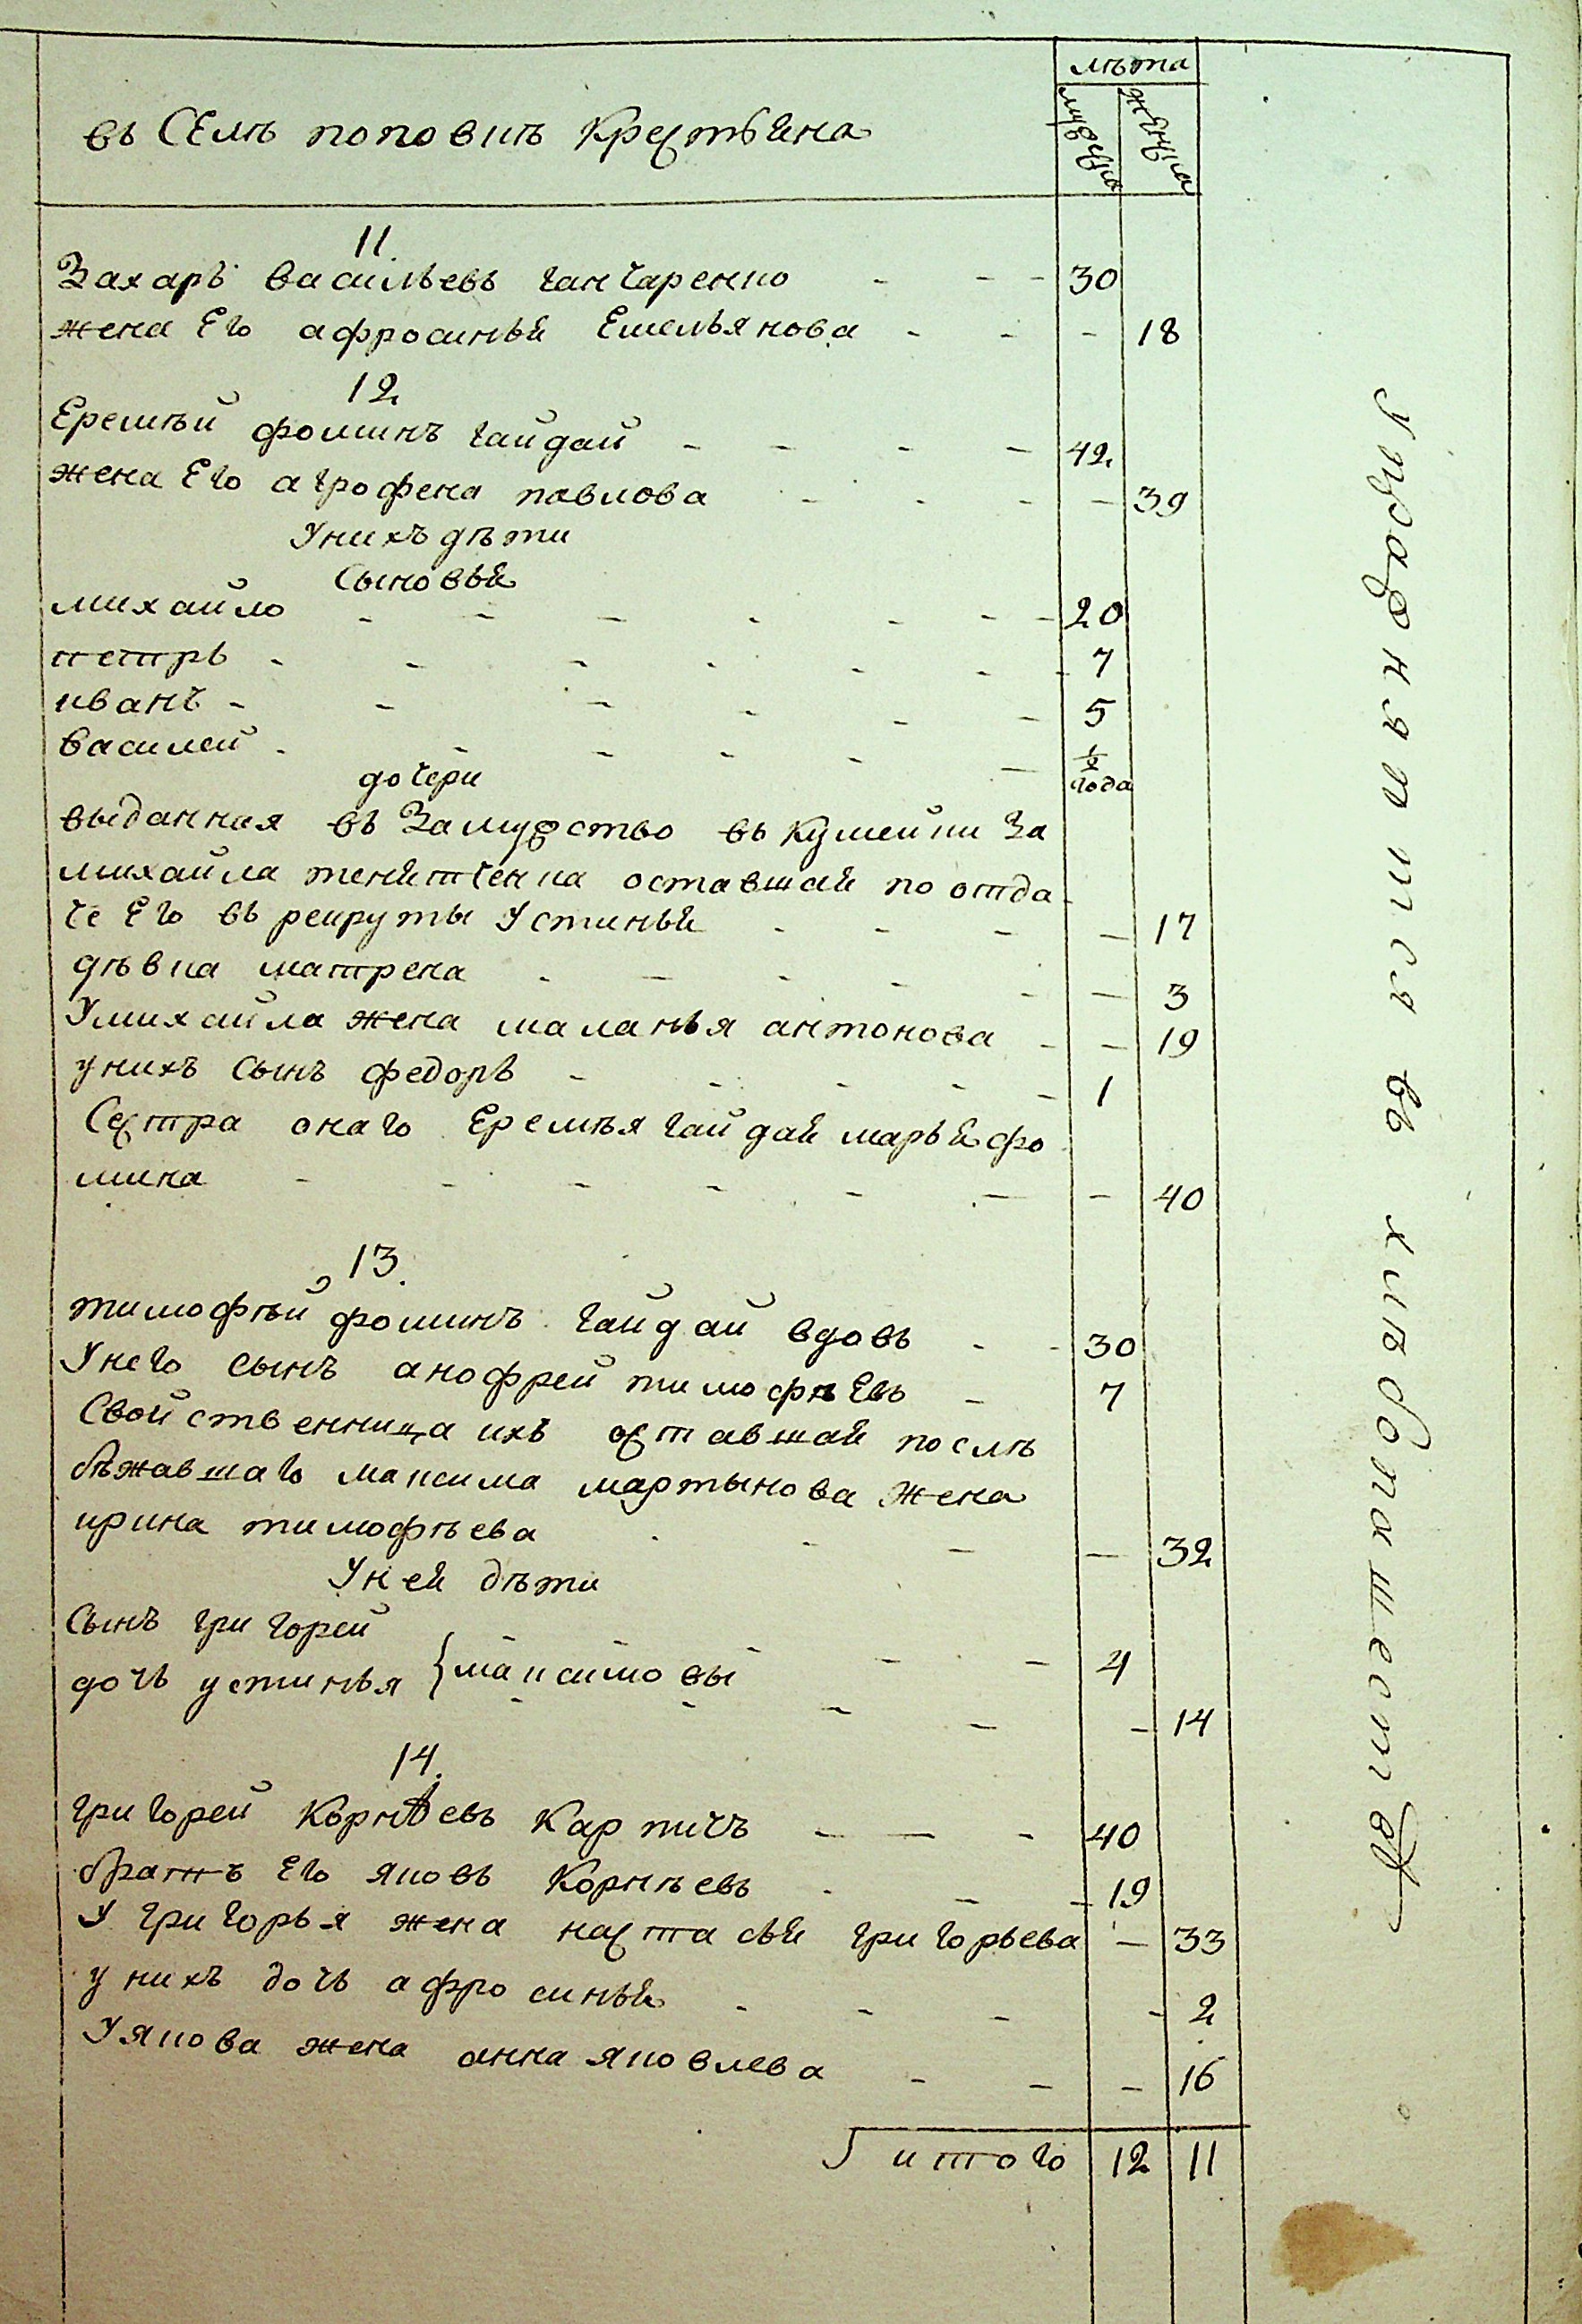 въ Селѣ поповкѣ Крестьяна
лѣта
мужеска
женска
11.
Захаръ Васильевъ Ганчаренко - - - 30
жена Его афросинья Емельянова - - - 18
12
Еремѣй фоминъ Гайдай - - - - 42
жена Его агрофена павлова - - - - 39
Унихъ дѣти
Сыновья
михайло - - - - - - - 20
петръ - - - - - - - 7
иванъ - - - - - - 5
василей - - - - - - ½ года
дочери
выданная въ Замужство въ кумейки За
михайла оставшая по отда-
че Его въ рекруты Устинья - - - - 17
дѣвка матрена - - - - - - 3
Умихайла жена маланья антонова - - 19
унихъ Сынъ федоръ - - - - - 1
Сестра онаго Еремѣя Гайдая марья фо-
мина - - - - - - - 40
13.
тимофѣй фоминъ Гайдай вдовъ - - 30
Унего сынъ анофрей тимофѣевъ - 7
Свойственница ихъ оставшая послѣ
бѣжавшаго максима мартынова жена
ирина тимофѣева - - - - 32
Уней дѣти
Сынъ григорей
{максимовы - - - - 4
дочь устинья - - - - - 14
14.
григорей Корнѣевъ - - - 40
братъ Его яковъ Корнѣевъ - - - 19
У григорья жена настасья григорьева - 33
унихъ дочь афросинья - - - - 2
Уякова жена анна яковлева - - - 16
итого 12 11
Упражняются въ хлебопашествѣ